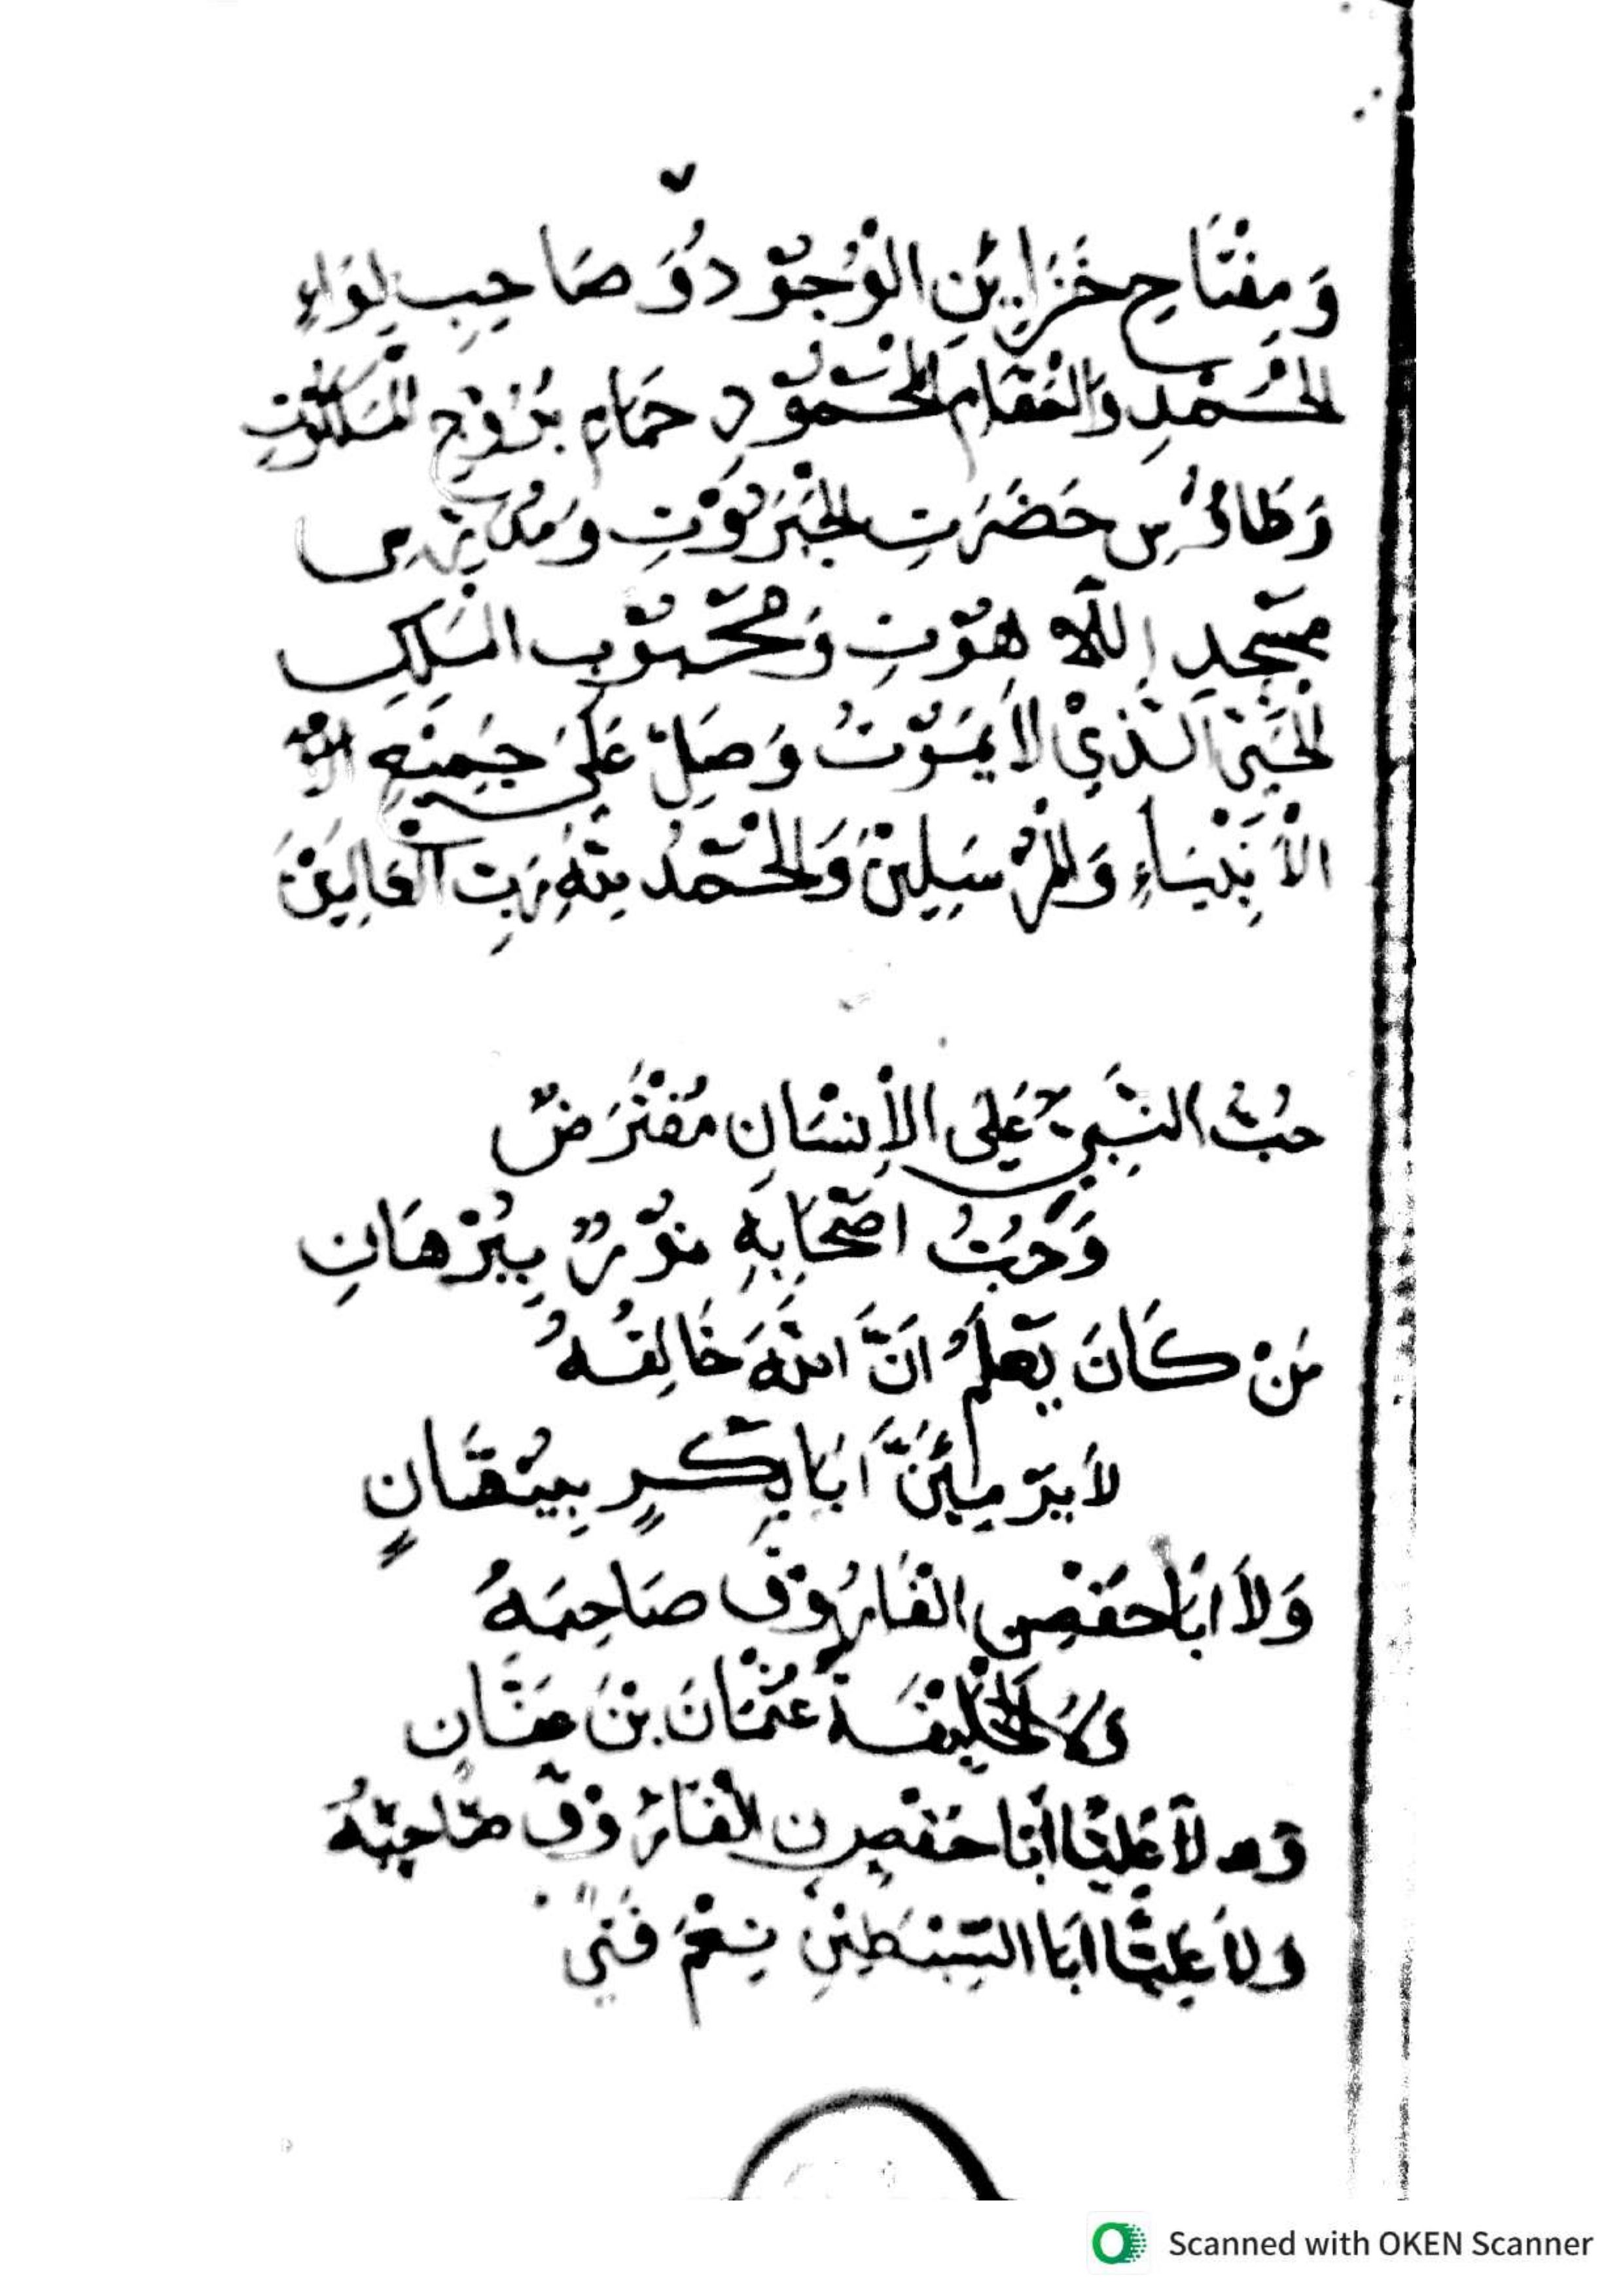 ٧
وَمِفْتَاحِ خَزَايِٕنِ الْوُجُوْدِ وَصَاحِبِ لِوَاءِ
الْحَمْدِ وَالْمَقَامِ الْمَحْمُوْدِ حَمَامِ بُرُوْجِ الْمَلَكُوْتِ
وَطَاؤُسِ حَضَرَتِ الْجَبَرُوْتِ وَمُدَرِّسِ
مَسْجِدِ اللَّاهُوْتِ وَمَحْبُوْبِ الْمَلِكِ
الْحَيِّ الَّذِيْ لاَ يَمُوْتُ وَصَلِّ عَلَى جَمِيْعِ
الْأَنْبِيَاءِ وَالْمُرْسَلِيْنَ وَالْحَمْدُ لِلّٰهِ رَبِّ الْعَالَمِيْنَ
حُبُّ النَّبِيِّ عَلَى الْإِنْسَانِ مُفْتَرَضٌ
وَحُبُّ اَصْحَابِهِ نُوْرٌ بِبُرْهَانِ
مَنْ كَانَ يَعْلَمُ اَنَّ اللّٰهَ خَالِقُهُ
لاَ يَرْمِيَنَّ اَبَا بَكْرٍ بِبُهْتَانٍ
وَلاَ اَبَا حَفْصِ الْفَارُوْقَ صَاحِبَهُ
وَلاَ الْخَلِيْفَةَ عُثْمَانَ بْنَ عَفَّانِ
وَلاَ عَلِيًّا أَبَا حَفْصِنِ الْفَارُوْقَ صَاحِبَهُ
وَلاَ عَلِيًّا اَبَا السِّبْطَيْنِ نِعْمَ فَتًى
Scanned with OKEN Scanner